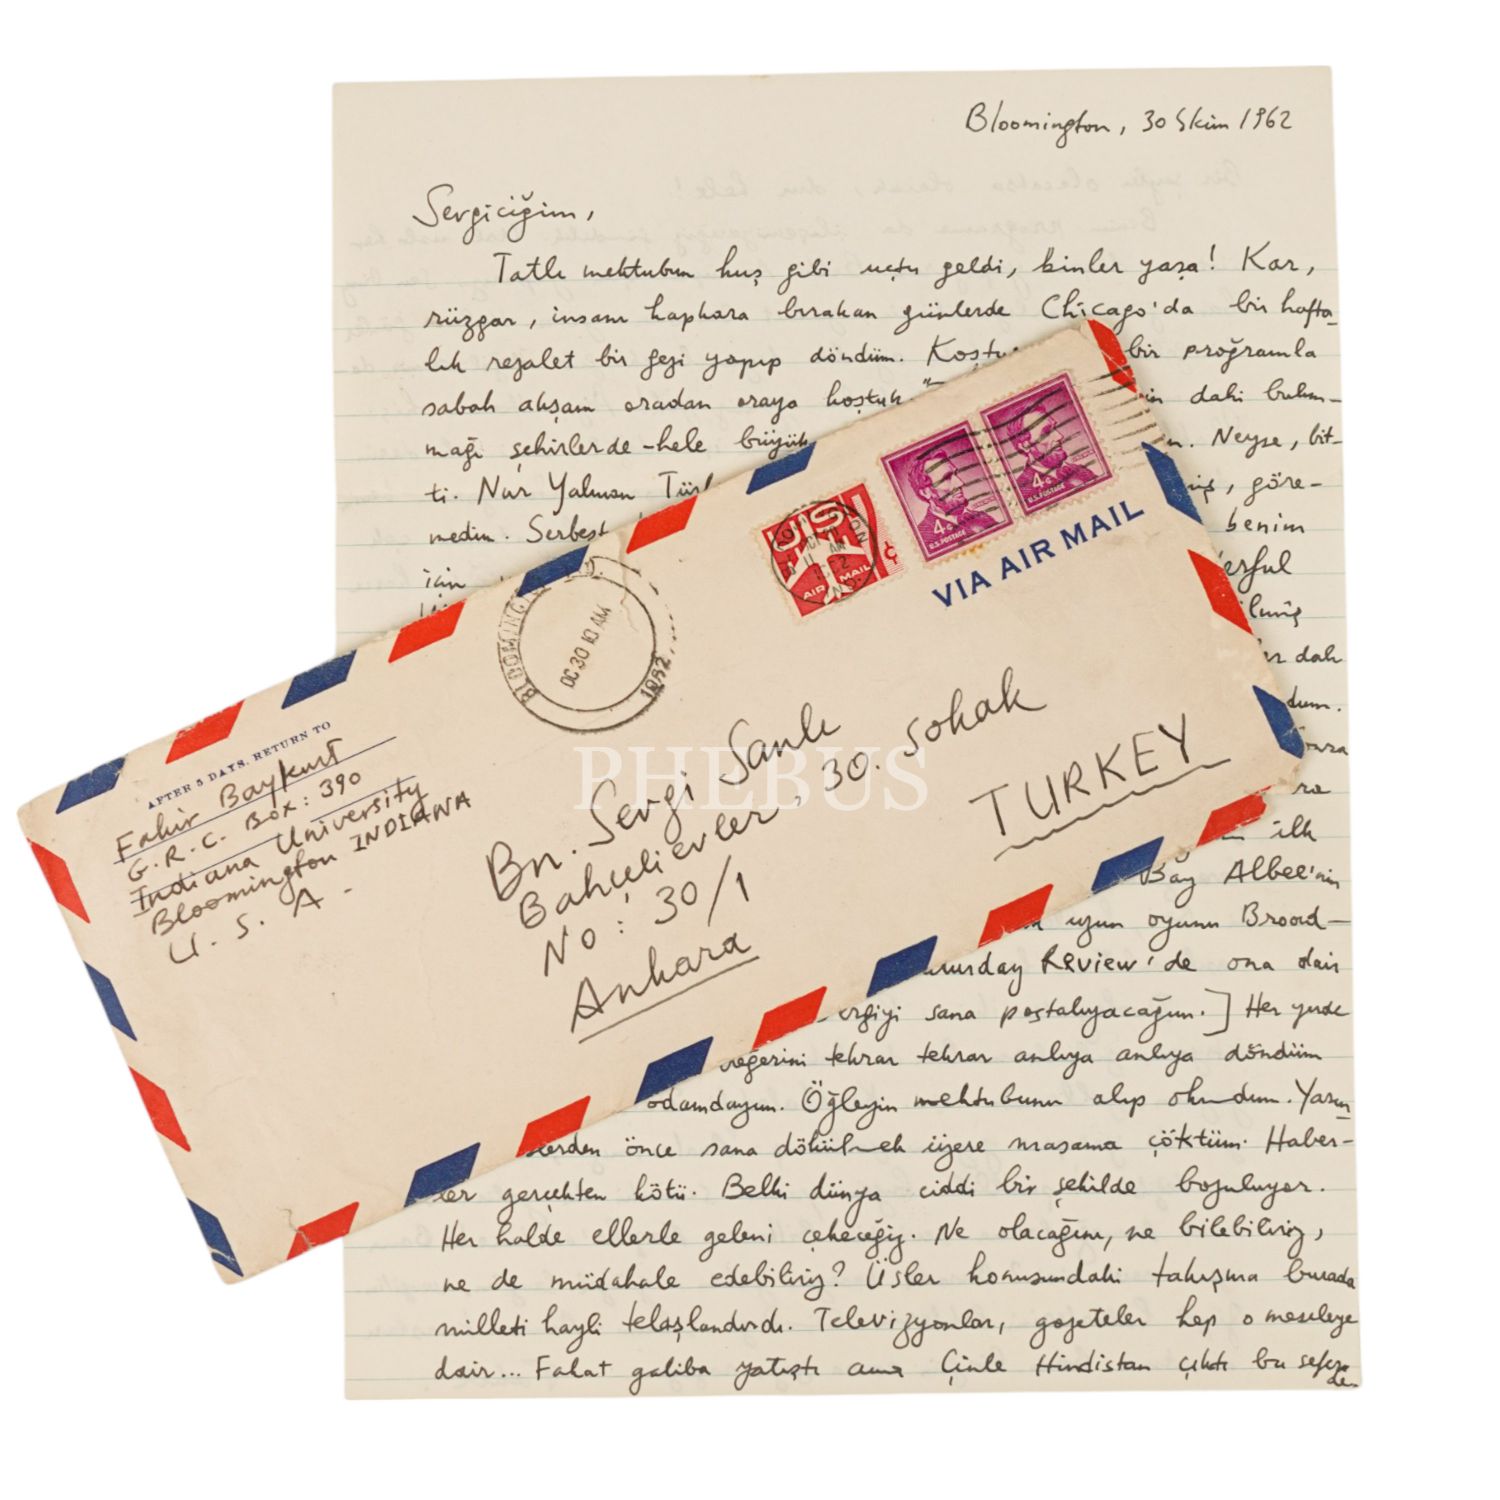 Bloomington, 30 Ekim 1962
Sevgiciğim,
Tatlı mektubun kuş gibi uçtu geldi, binler yaşa! Kar,
rüzgar, insanı kapkara bırakan günlerde Chicago'da bir hafta-
lık rezalet bir gezi yapıp döndüm. bir proğramla
sabah akşam oradan oraya koştuk. dahi bulun-
mağı şehirlerde -hele büyük Neyse, bit-
ti. Nur Yalman göre-
medim. Serbest benim
için
ilk
Bay Albee'nin
uzun oyunu Broad-
Review'de ona dair
sana postalıyacağım.] Her yerde
tekrar tekrar anlıya anlıya döndüm
odamdayım. Öğleyin mektubunu alıp okudum.
önce sana dökülmek üzere masama çöktüm. Haber-
ler gerçekten kötü. Belki dünya ciddi bir şekilde bozuluyor.
Her halde ellerle geleni çekeceğiz. Ne olacağını, ne bilebiliriz,
ne de müdahale edebiliriz? Üsler konusundaki takışma burada
milleti hayli telaşlandırdı. Televizyonlar, gazeteler hep o meseleye
dair... Fakat galiba yatıştı ama Çinle Hindistan çıktı bu sefer
de
U.S.
AIR MAIL
4¢
U.S. POSTAGE
4¢
U.S. POSTAGE
VIA AIR MAIL
BLOOMINGTON, IND.
OC 30 10 AM
1962
AFTER 5 DAYS, RETURN TO
Fakir Baykurt
G.R.C. Box: 390
Indiana University
Bloomington INDIANA
U.S.A.
Bn. Sevgi Sanlı
Bahçelievler, 30. sokak
No: 30/1
Ankara
TURKEY
PHEBUS